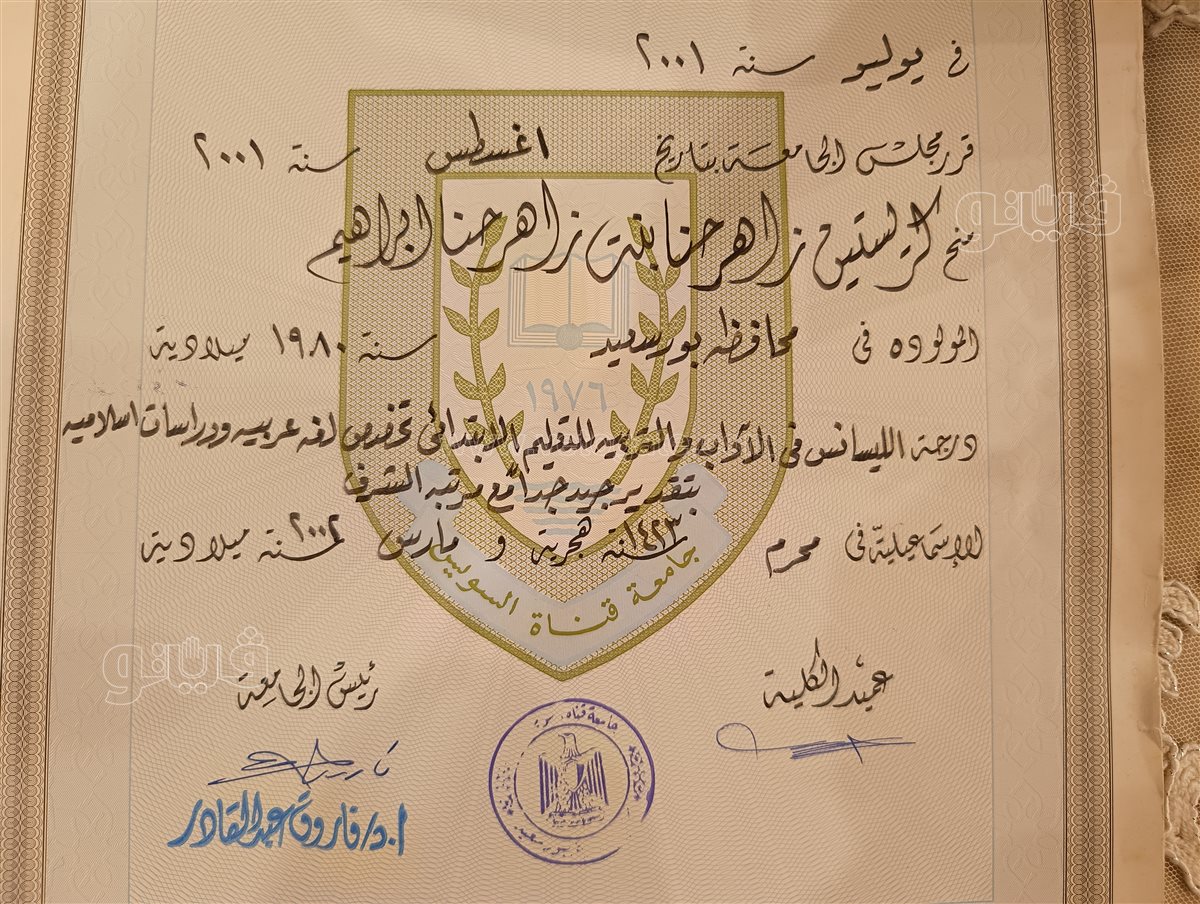 فى يوليو سنة ٢٠٠١
قرر مجلس الجامعة بتاريخ اغسطس سنة ٢٠٠١
منح كريستين زاهر حنا بنت زاهر حنا ابراهيم
المولوده فى محافظه بورسعيد سنة ١٩٨٠ ميلادية
١٩٧٦
درجة الليسانس فى الآداب والتربيه للتعليم الابتدائى تخصص لغه عربيه ودراسات اسلاميه
بتقدير جيد جداً مع مرتبه الشرف
الإسماعيلية فى محرم سنة ١٤٢٣ هجرية و مارس سنة ٢٠٠٢ ميلادية
جامعة قناة السويس
عميد الكلية
رئيس الجامعة
ا.د/ فاروق عبدالقادر
جامعة قناة
فيتو
فيتو